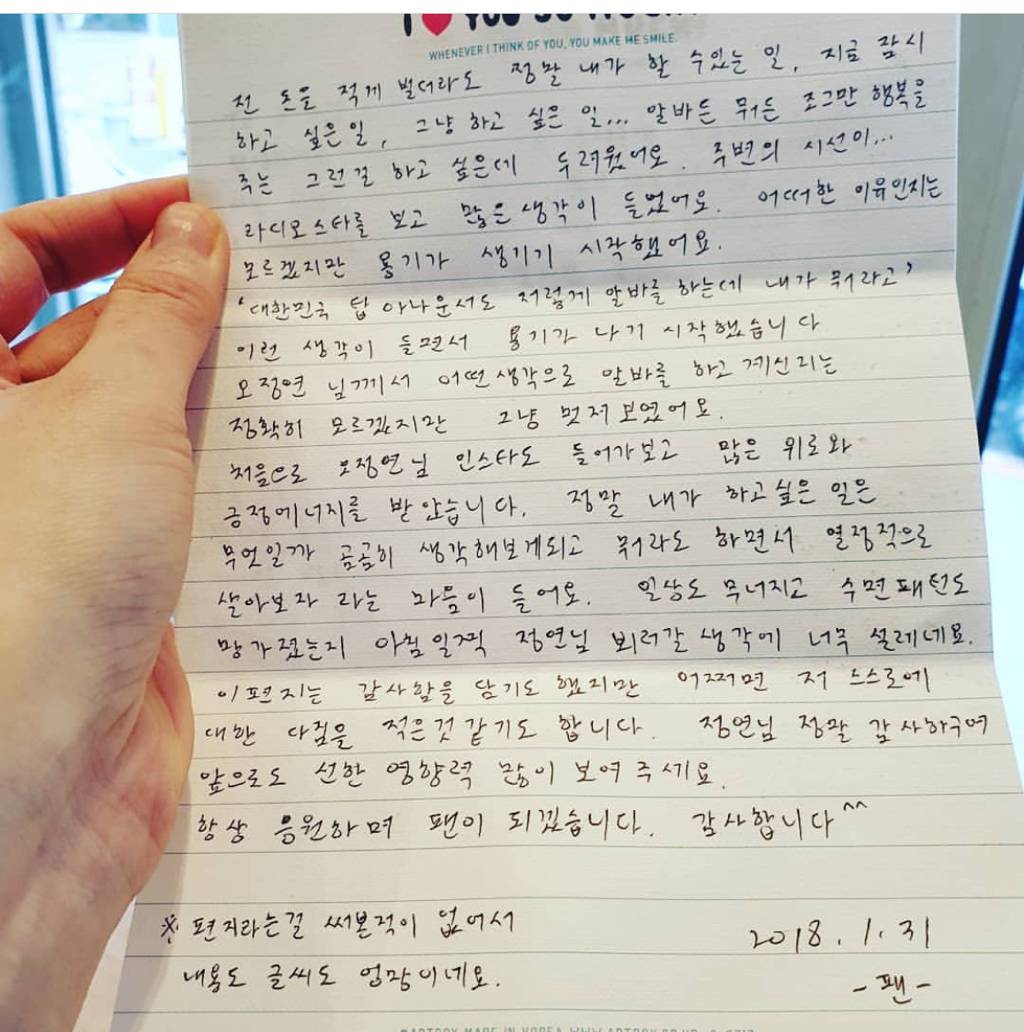 I ♥ YOU SO
WHENEVER I THINK OF YOU, YOU MAKE ME SMILE.
전 돈을 적게 벌더라도 정말 내가 할 수있는 일, 지금 잠시
하고 싶은 일, 그냥 하고 싶은 일... 알바든 뭐든 조그만 행복을
주는 그런걸 하고 싶은데 두려웠어요. 주변의 시선이...
라디오스타를 보고 많은 생각이 들었어요. 어떠한 이유인지는
모르겠지만 용기가 생기기 시작했어요.
'대한민국 탑 아나운서도 저렇게 알바를 하는데 내가 뭐라고'
이런 생각이 들면서 용기가 나기 시작했습니다
오정연 님께서 어떤 생각으로 알바를 하고 계신지는
정확히 모르겠지만 그냥 멋져보였어요.
처음으로 오정연님 인스타도 들어가보고 많은 위로와
긍정에너지를 받았습니다. 정말 내가 하고싶은 일은
무엇일까 곰곰히 생각해보게되고 뭐라도 하면서 열정적으로
살아보자 라는 마음이 들어요. 일상도 무너지고 수면패턴도
망가졌는지 아침일찍 정연님 뵈러갈 생각에 너무 설레네요.
이 편지는 감사함을 담기도 했지만 어쩌면 저 스스로에
대한 다짐을 적은것 같기도 합니다. 정연님 정말 감사하구여
앞으로도 선한 영향력 많이 보여 주세요.
항상 응원하며 팬이 되겠습니다. 감사합니다^^
※ 편지라는걸 써본적이 없어서
2018. 1. 31
내용도 글씨도 엉망이네요.
-팬-